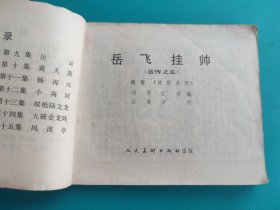 录
第九集 岳云
第十集 黄天荡
第十一集 杨再兴
第十二集 小商河
第十三集 双枪陆文龙
第十四集 大破金龙阵
第十五集 风波亭
岳飞挂帅
(岳传之五)
根据《说岳全传》
人民美术出版社出版